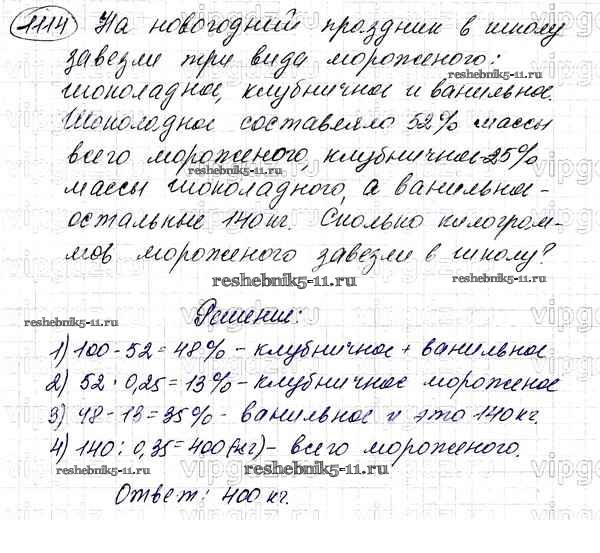 1114 На новогодний праздник в школу
завезли три вида мороженого:
reshebnik5-11.ru
шоколадное, клубничное и ванильное.
Шоколадное составляло 52% массы
всего мороженого, клубничное-25%
reshebnik5-11.ru
массы шоколадного, а ванильное -
остальные 140 кг. Сколько килограм-
мов мороженого завезли в школу?
reshebnik5-11.ru
Решение:
reshebnik5-11.ru
1) 100 - 52 = 48% - клубничное + ванильное
2) 52 · 0,25 = 13% - клубничное мороженое
3) 48 - 13 = 35% - ванильное и это 140 кг.
4) 140 : 0,35 = 400 (кг) - всего мороженого.
reshebnik5-11.ru
reshebnik5-11.ru
Ответ: 400 кг.